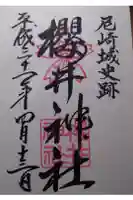 尼崎城史跡
櫻井神社
平成二十一年四月十二日